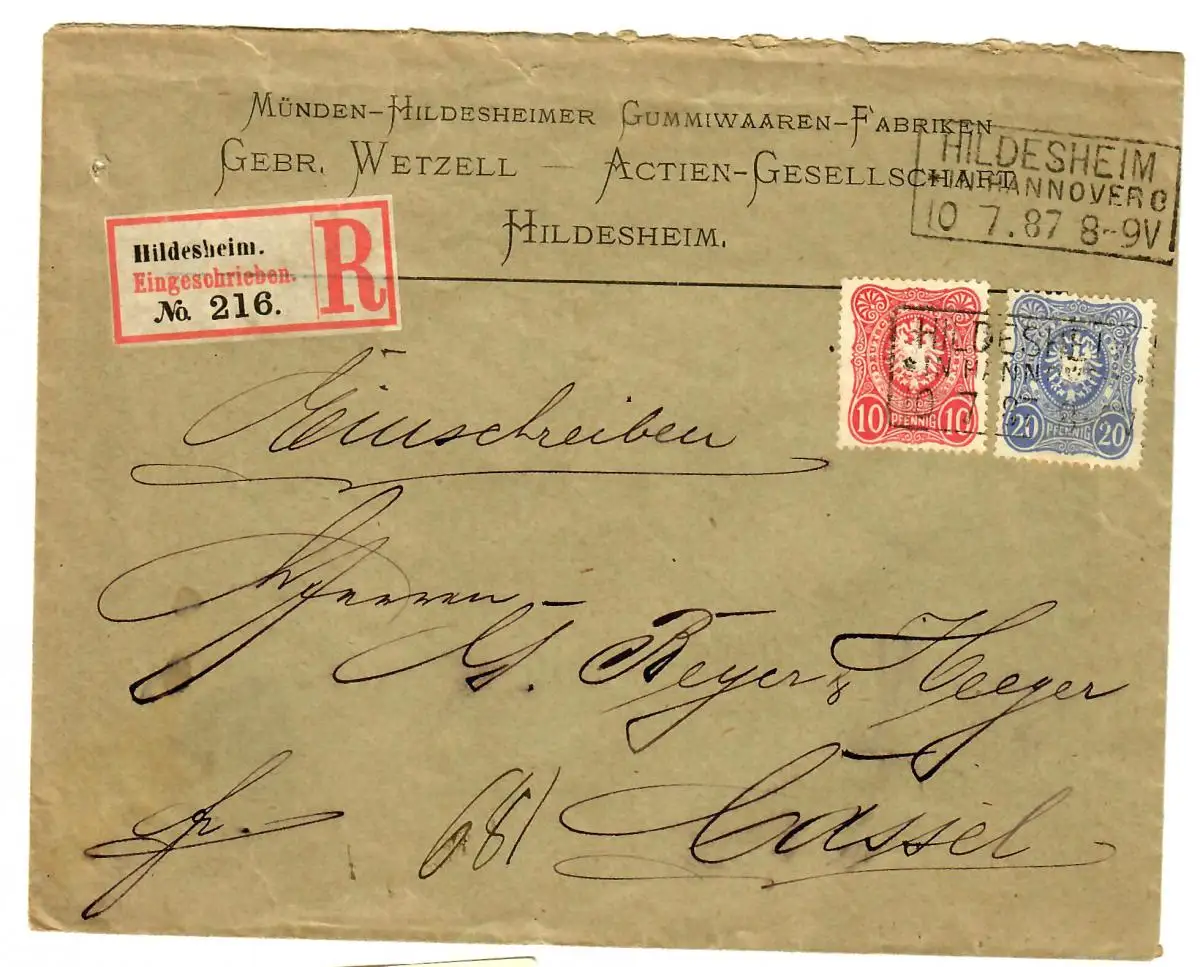 MÜNDEN-HILDESHEIMER GUMMIWAAREN-FABRIKEN
GEBR. WETZELL — ACTIEN-GESELLSCHAFT
HILDESHEIM.
HILDESHEIM
*IN HANNOVER C
10 7.87 8-9V
Hildesheim.
Eingeschrieben.
No. 216.
R
10 PFENNIG 10
20 PFENNIG 20
Einschreiben
Herren
Beyer & Heeger
Cassel
fr.
681